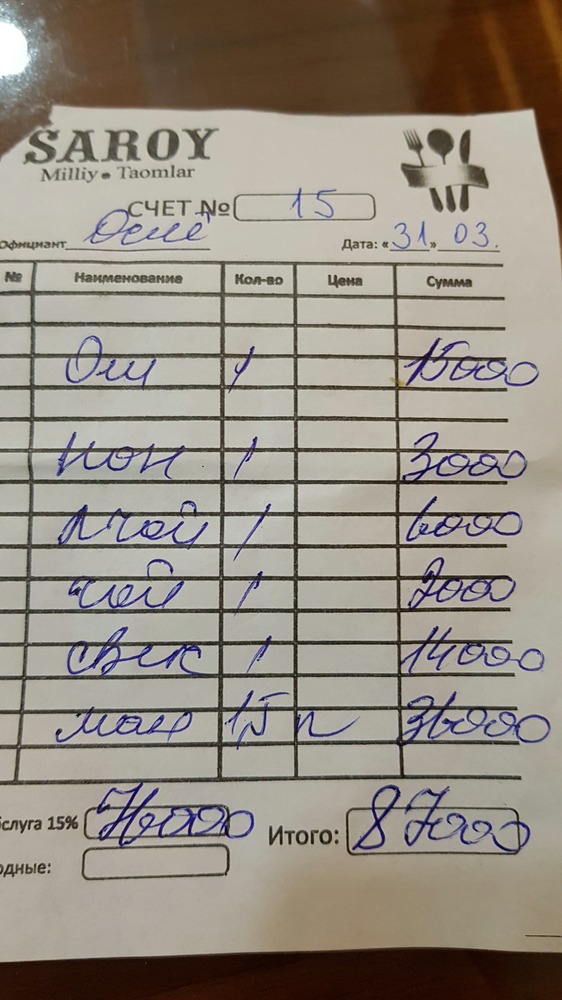 SAROY
Milliy • Taomlar
СЧЕТ № 15
Официант
Дата: «31» 03.
№ Наименование Кол-во Цена Сумма
Ош 1 15000
нон 1 3000
1 6000
чой 1 2000
свек 1 14000
1,5 п 36000
слуга 15% 76000 Итого: 87000
одные: